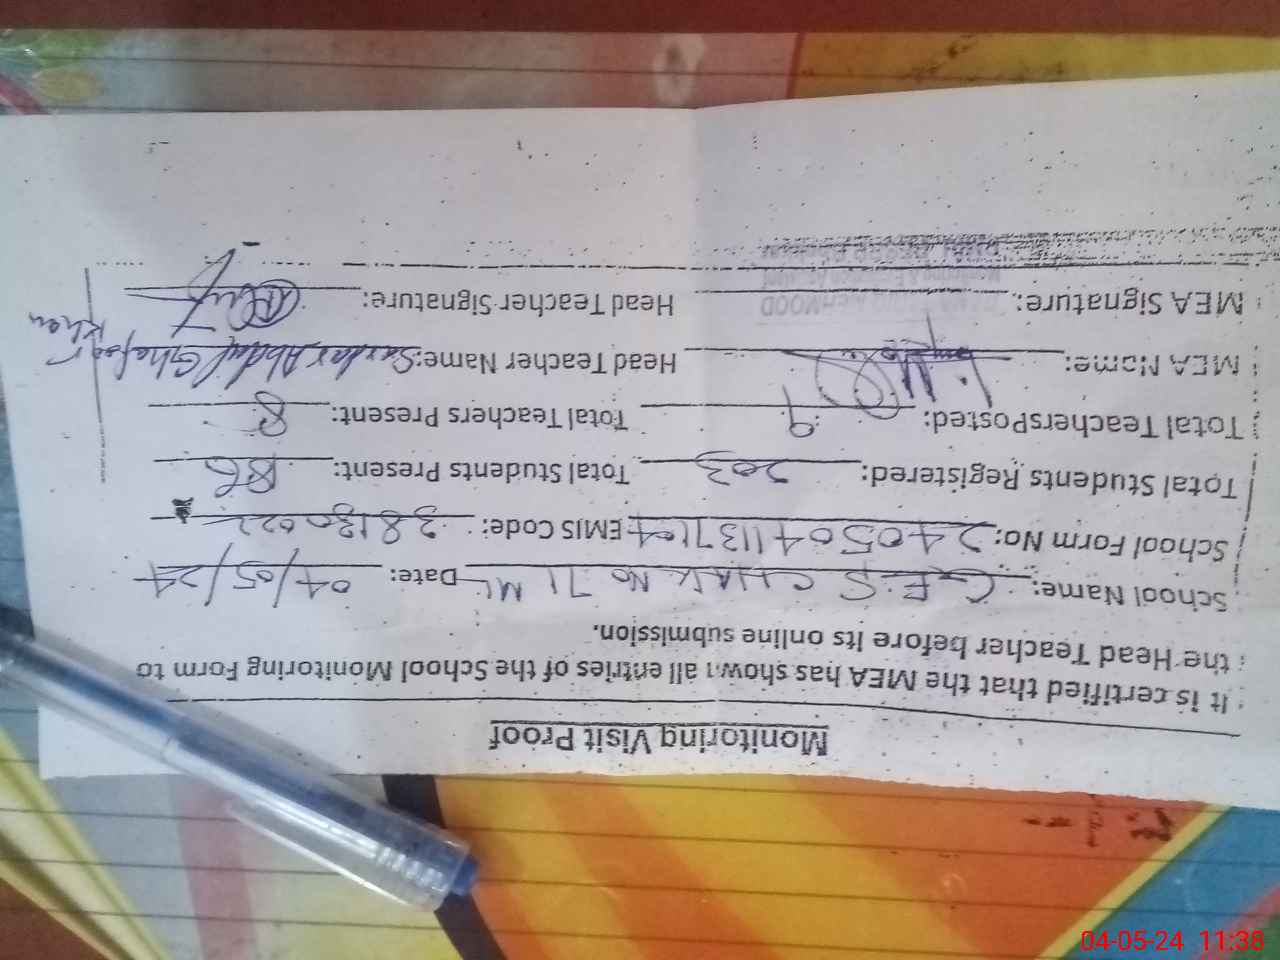 Monitoring Visit Proof
It is certified that the MEA has shown all entries of the School Monitoring Form to
the Head Teacher before its online submission.
School Name: G.E.S CHAK No 71 ML Date: 04/05/24
School Form No: 24050411371104 EMIS Code: 38130022
Total Students Registered: 203 Total Students Present:
Total TeachersPosted: 9 Total Teachers Present: 8
MEA Name: Head Teacher Name: Sardar Abdul Ghafoor Khan
MEA Signature: Head Teacher Signature:
04-05-24 11:38